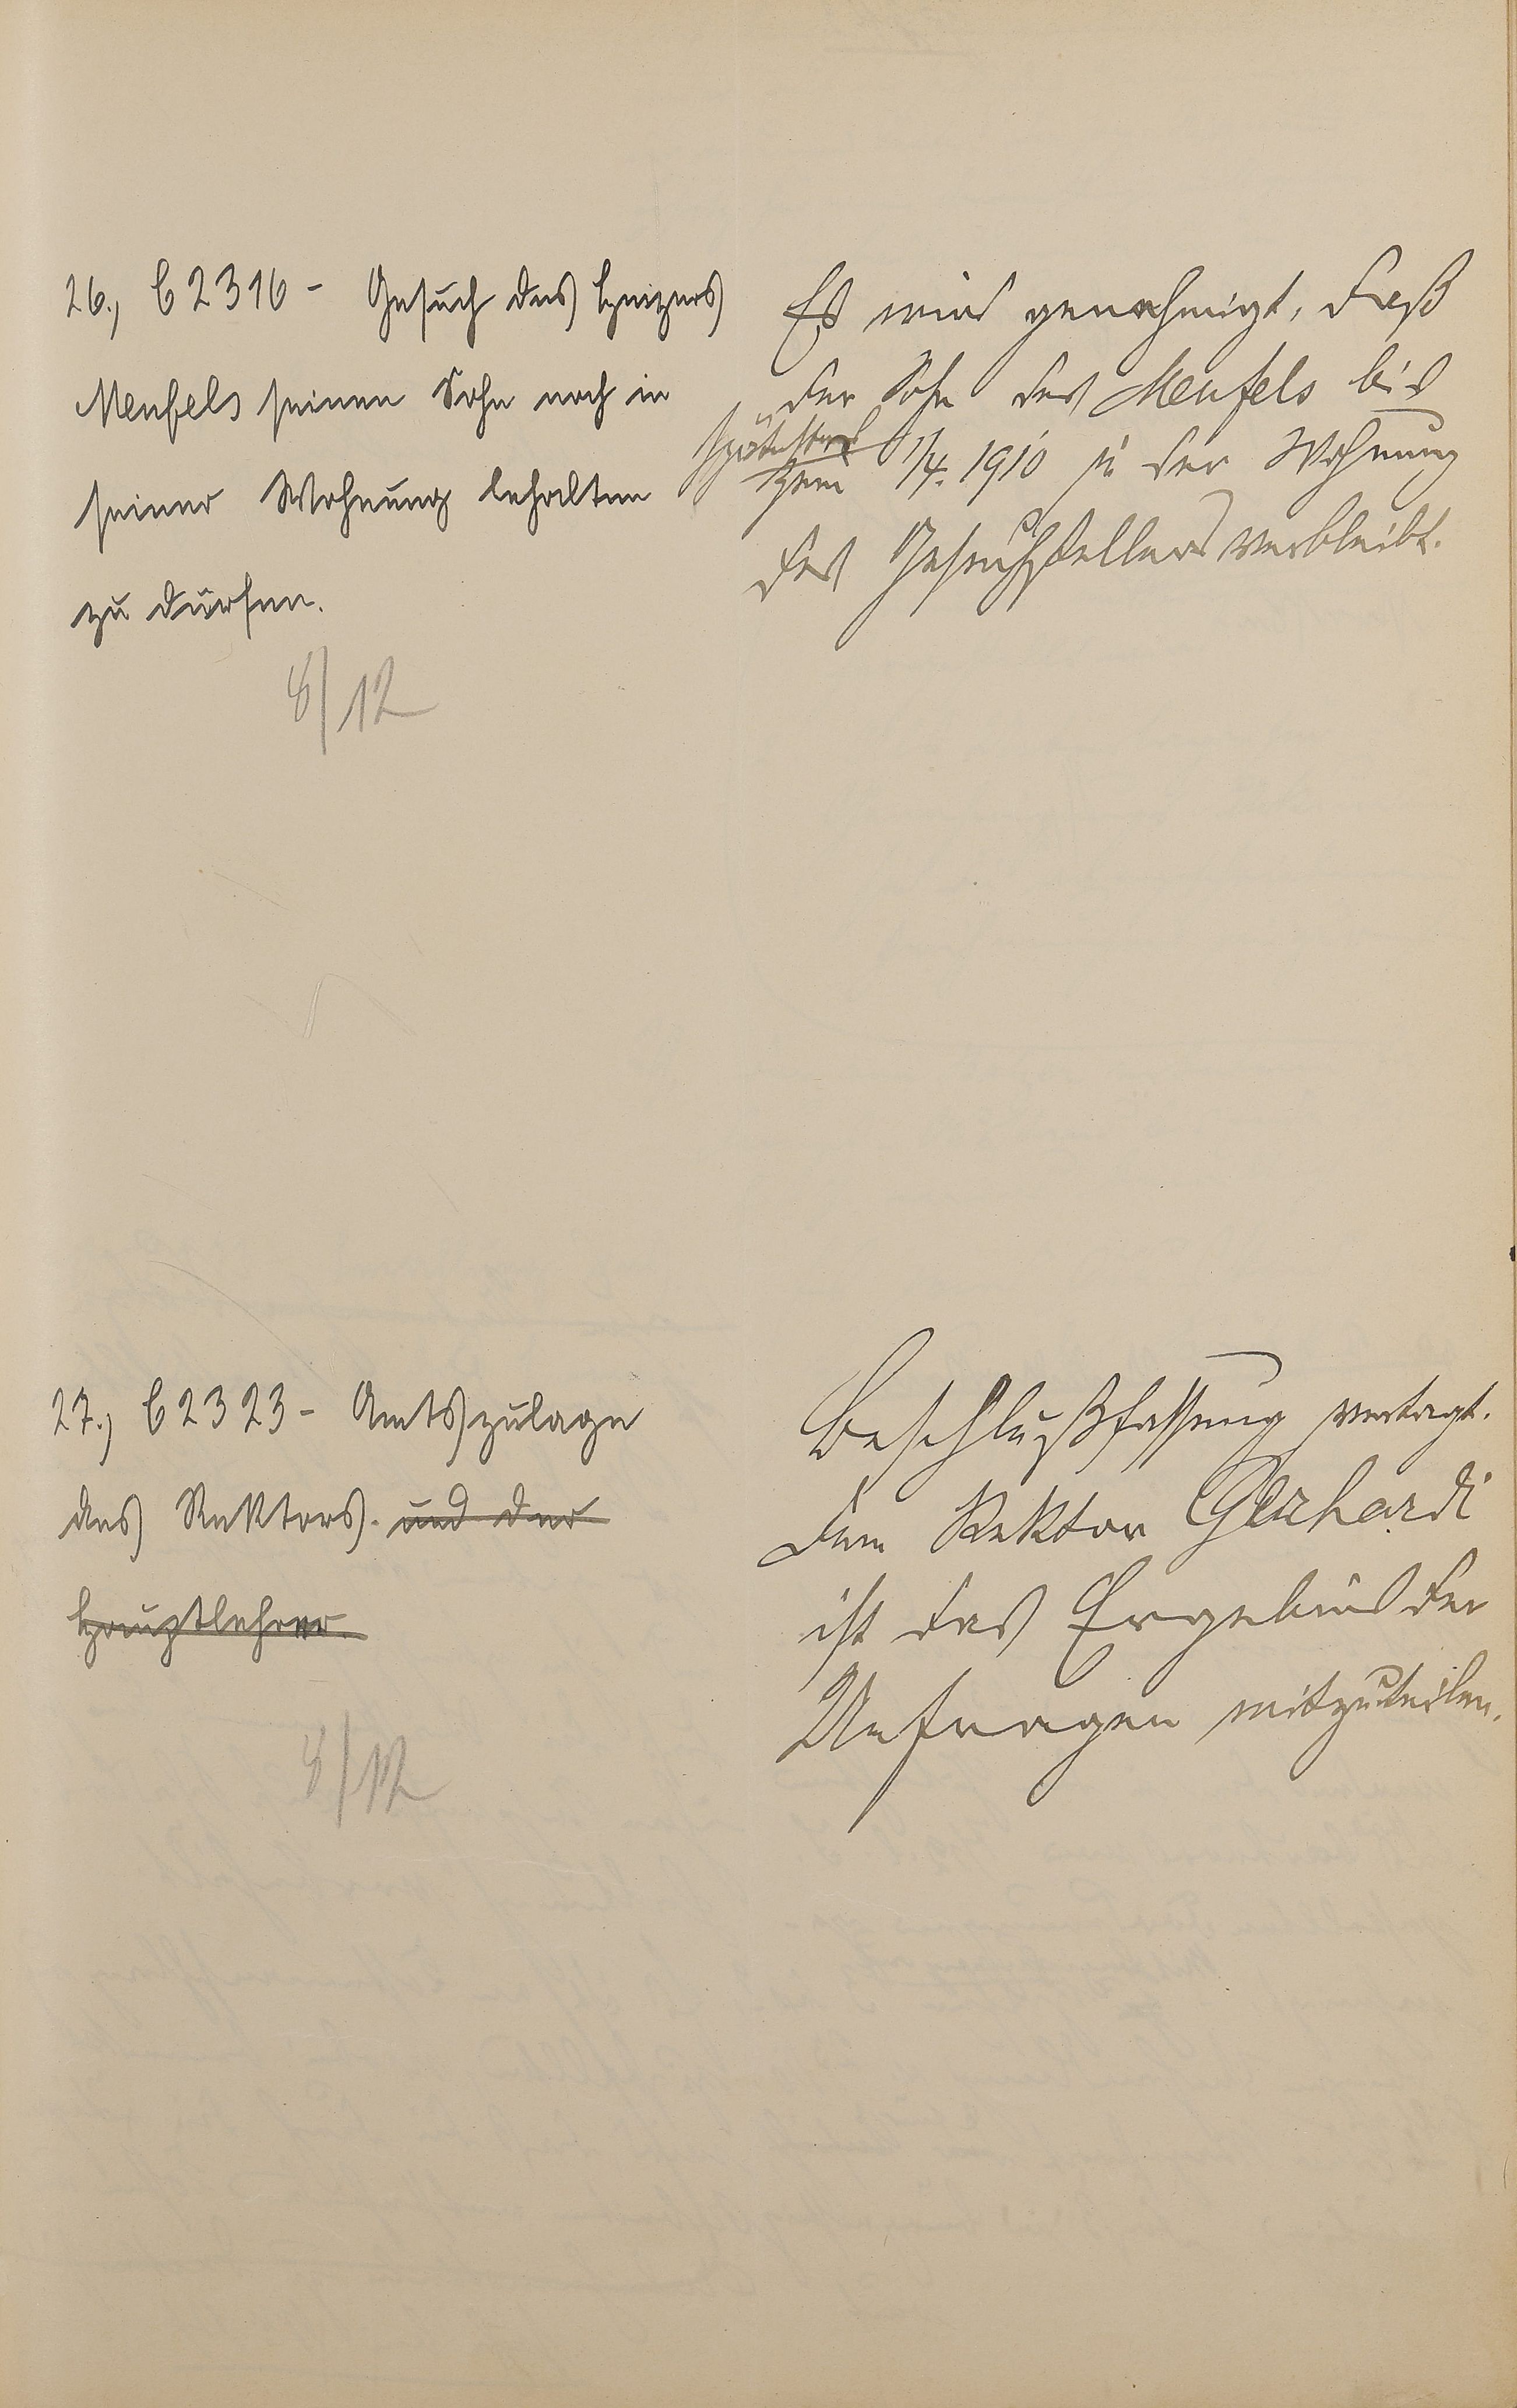 26., C 2316 - Gesuch des Heizers
Menfels seinen Sohn noch in
seiner Wohnung behalten
zu dürfen.
8/12
Es wird genehmigt, daß
der Sohn des Menfels bis
spätestens
zum 1/4. 1910 in der Wohnung
des Gesuchstellers verbleibt.
27., C 2323 - Amtszulage
des Rektors. und der
Hauptlehrer.
8/12
Beschlußfassung vertagt.
Dem Rektor Gerhardi
ist das Ergebnis der
Umfragen mitzuteilen.